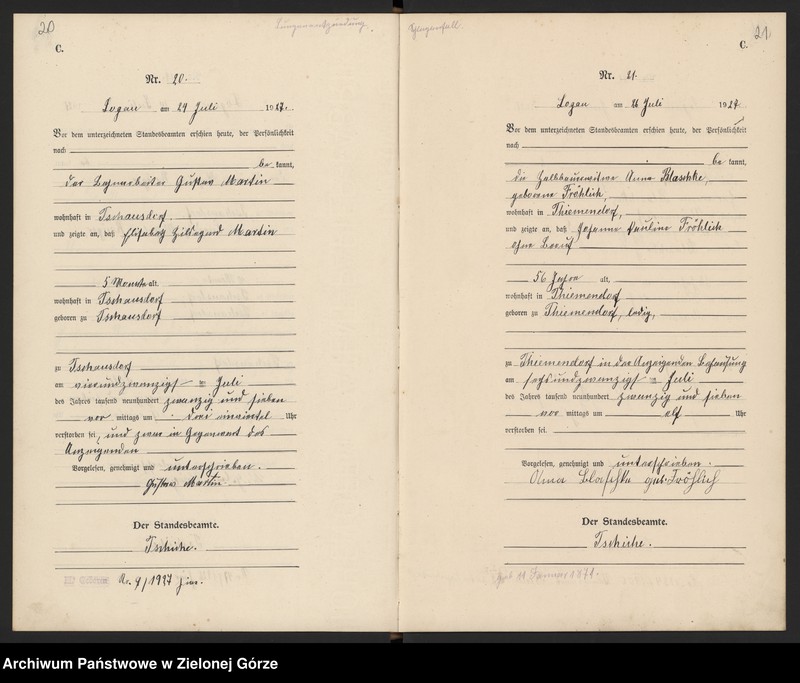 20
Lungenentzündung.
C.
Nr. 20.
Logau am 24 Juli 1927.
Vor dem unterzeichneten Standesbeamten erschien heute, der Persönlichkeit
nach
be kannt,
der Bahnarbeiter Gustav Martin
wohnhaft in Tschausdorf.
und zeigte an, daß Elisabeth Hildegard Martin
5 Monate alt,
wohnhaft in Tschausdorf
geboren zu Tschausdorf
zu Tschausdorf
am vierundzwanzigsten Juli
des Jahres tausend neunhundert zwanzig und sieben
vor mittags um drei einviertel Uhr
verstorben sei, und zwar in Gegenwart des
Anzeigenden
Vorgelesen, genehmigt und unterschrieben.
Gustav Martin
Der Standesbeamte.
Tschiche.
Nr. 9/1927
21
Schlaganfall.
C.
Nr. 21.
Logau am 26 Juli 1927
Vor dem unterzeichneten Standesbeamten erschien heute, der Persönlichkeit
nach
be kannt,
die Halbbauerwitwe Anna Blaschke,
geborene Fröhlich,
wohnhaft in Thiemendorf,
und zeigte an, daß Johanne Pauline Fröhlich
ohne Beruf
56 Jahre alt,
wohnhaft in Thiemendorf
geboren zu Thiemendorf, ledig,
zu Thiemendorf in der Anzeigenden Behausung
am sechsundzwanzigsten Juli
des Jahres tausend neunhundert zwanzig und sieben
vor mittags um elf Uhr
verstorben sei.
Vorgelesen, genehmigt und unterschrieben.
Anna Blaschke geb. Fröhlich
Der Standesbeamte.
Tschiche.
Geb. 11 Januar 1871.
Archiwum Państwowe w Zielonej Górze